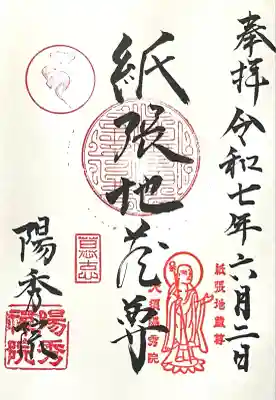 奉拝 令和七年六月二日
紙張地蔵尊
陽秀院
紙張地蔵尊
大須陽秀院
陽秀禅院